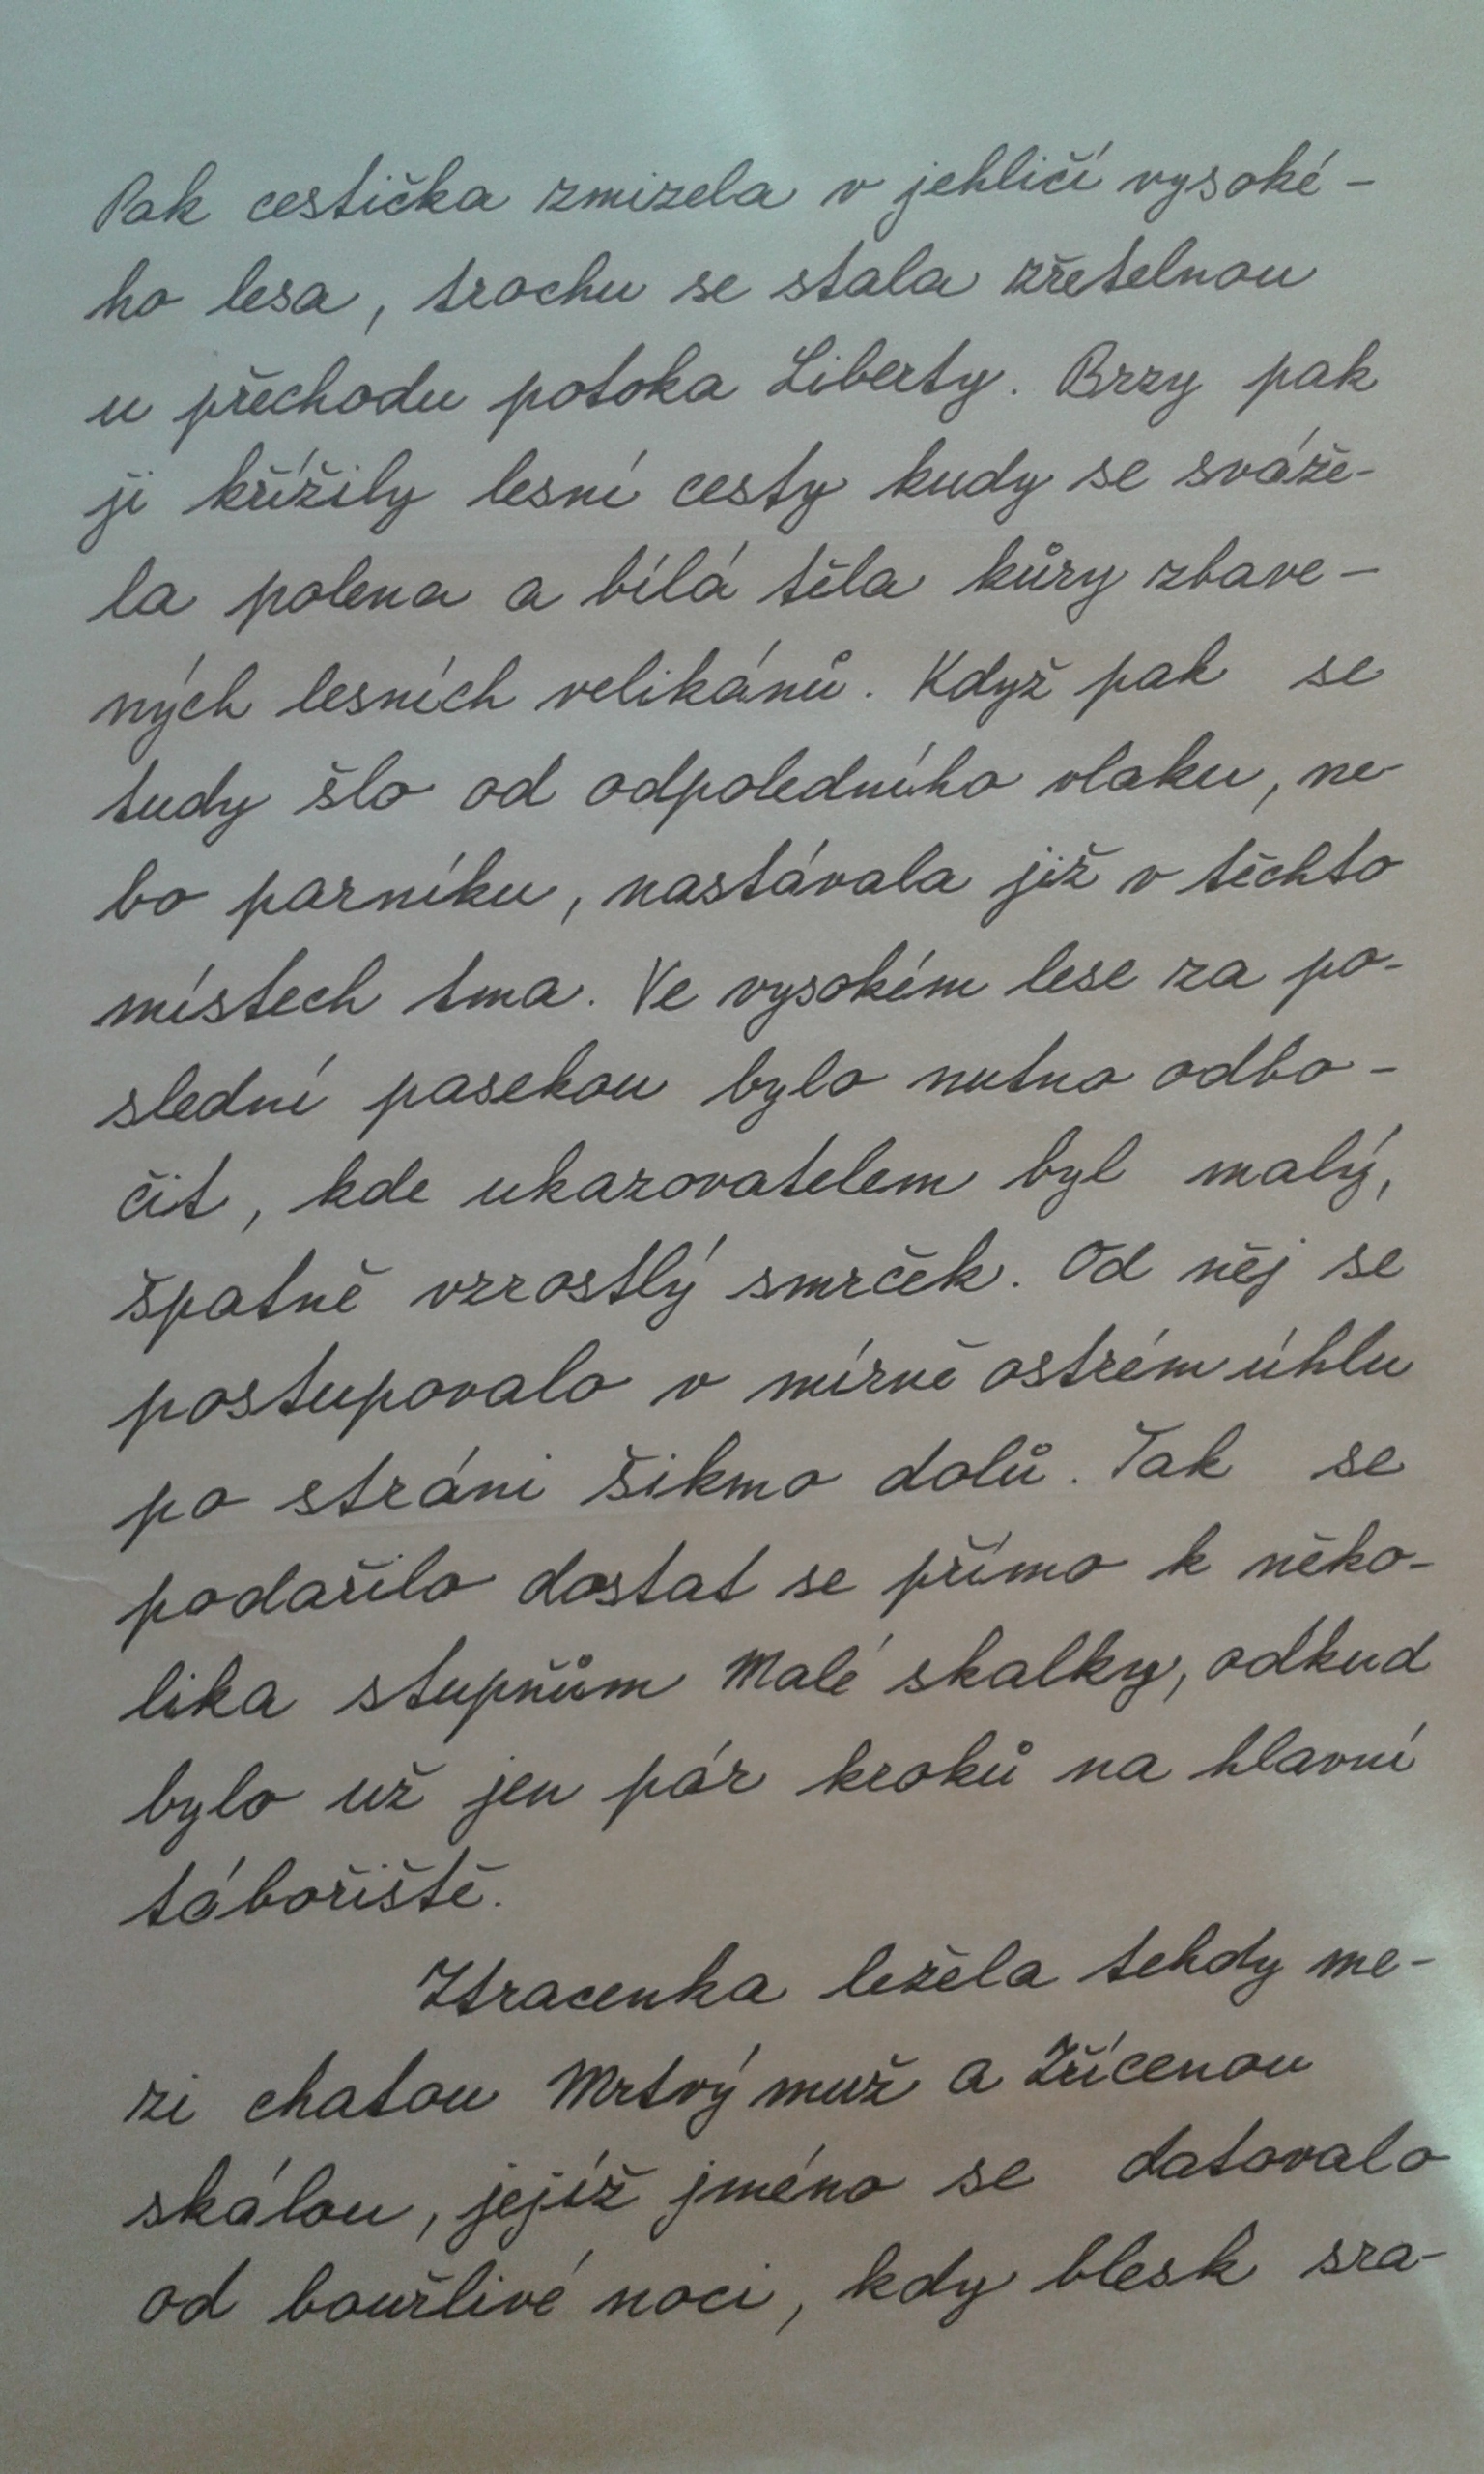 Pak cestička zmizela v jehličí vysoké-
ho lesa, trochu se stala zřetelnou
u přechodu potoka Liberty. Brzy pak
ji křížily lesní cesty kudy se sváže-
la polena a bílá těla kůry zbave-
ných lesních velikánů. Když pak se
tudy šlo od odpoledního vlaku, ne-
bo parníku, nastávala již v těchto
místech tma. Ve vysokém lese za po-
slední pasekou bylo nutno odbo-
čit, kde ukazovatelem byl malý,
špatně vzrostlý smrček. Od něj se
postupovalo v mírně ostrém úhlu
po stráni šikmo dolů. Tak se
podařilo dostat se přímo k něko-
lika stupňům Malé skalky, odkud
bylo už jen pár kroků na hlavní
tábořiště.
Ztracenka ležela tehdy me-
zi chatou Mrtvý muž a Zřícenou
skálou, jejíž jméno se datovalo
od bouřlivé noci, kdy blesk sra-